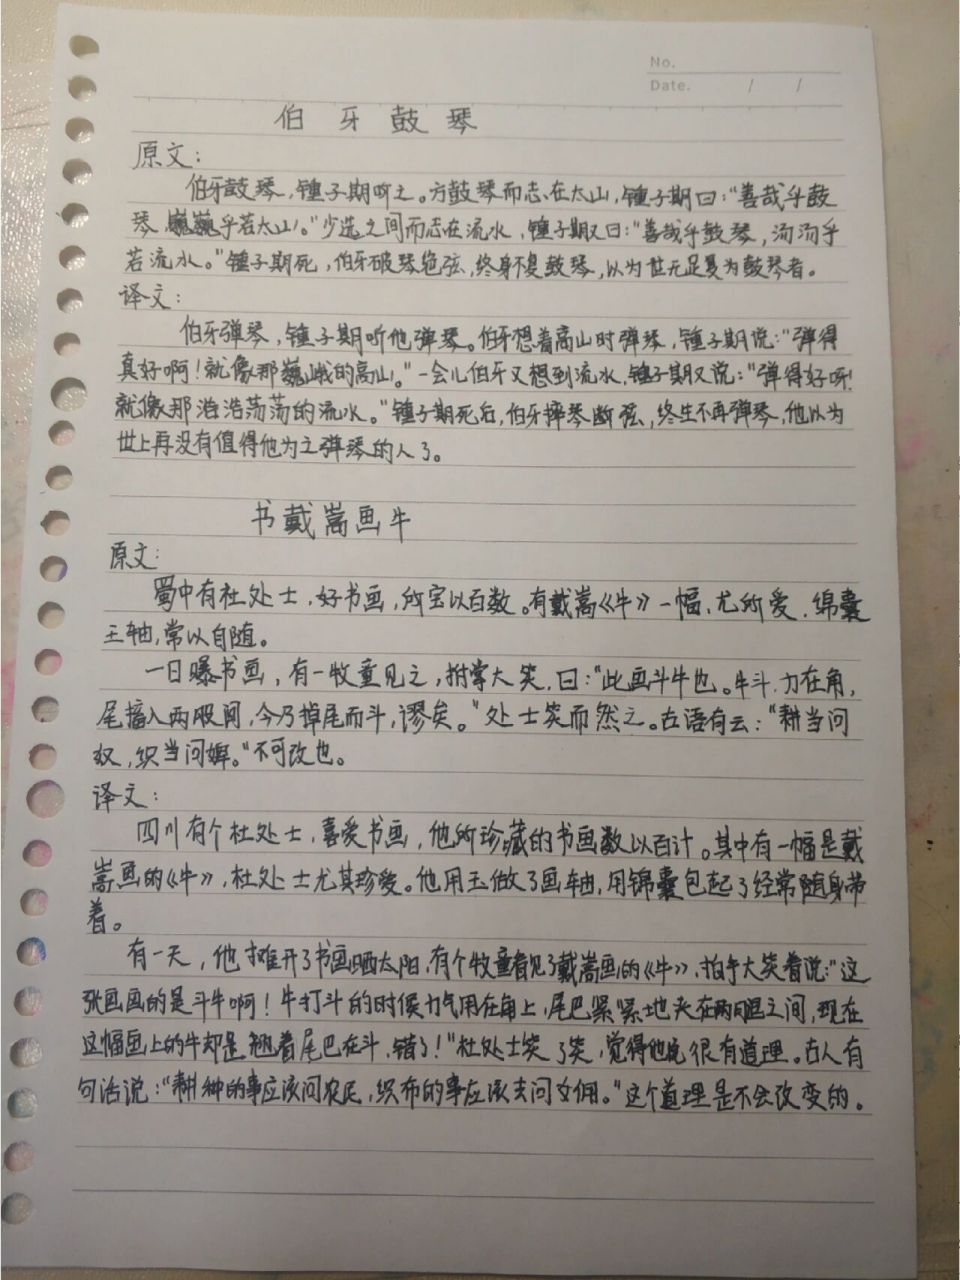 No.
Date. / /
伯牙鼓琴
原文：
伯牙鼓琴，锺子期听之。方鼓琴而志在太山，锺子期曰：“善哉乎鼓
琴，巍巍乎若太山。”少选之间而志在流水，锺子期又曰：“善哉乎鼓琴，汤汤乎
若流水。”锺子期死，伯牙破琴绝弦，终身不复鼓琴，以为世无足复为鼓琴者。
译文：
伯牙弹琴，锺子期听他弹琴。伯牙想着高山时弹琴，锺子期说：“弹得
真好啊！就像那巍峨的高山。”一会儿伯牙又想到流水，锺子期又说：“弹得好呀！
就像那浩浩荡荡的流水。”锺子期死后，伯牙摔琴断弦，终生不再弹琴，他以为
世上再没有值得他为之弹琴的人了。
书戴嵩画牛
原文：
蜀中有杜处士，好书画，所宝以百数。有戴嵩《牛》一幅，尤所爱，绵囊
玉轴，常以自随。
一日曝书画，有一牧童见之，拊掌大笑，曰：“此画斗牛也。牛斗，力在角，
尾搐入两股间，今乃掉尾而斗，谬矣。”处士笑而然之。古语有云：“耕当问
奴，织当问婢。”不可改也。
译文：
四川有个杜处士，喜爱书画，他所珍藏的书画数以百计。其中有一幅是戴
嵩画的《牛》，杜处士尤其珍爱。他用玉做了画轴，用锦囊包起了经常随身带
着。
有一天，他摊开了书画晒太阳，有个牧童看见了戴嵩画的《牛》，拍手大笑着说：“这
张画画的是斗牛啊！牛打斗的时候力气用在角上，尾巴紧紧地夹在两腿之间，现在
这幅画上的牛却是翘着尾巴在斗，错了！”杜处士笑了笑，觉得他说很有道理。古人有
句话说：“耕种的事应该问农民，织布的事应该去问女佣。”这个道理是不会改变的。